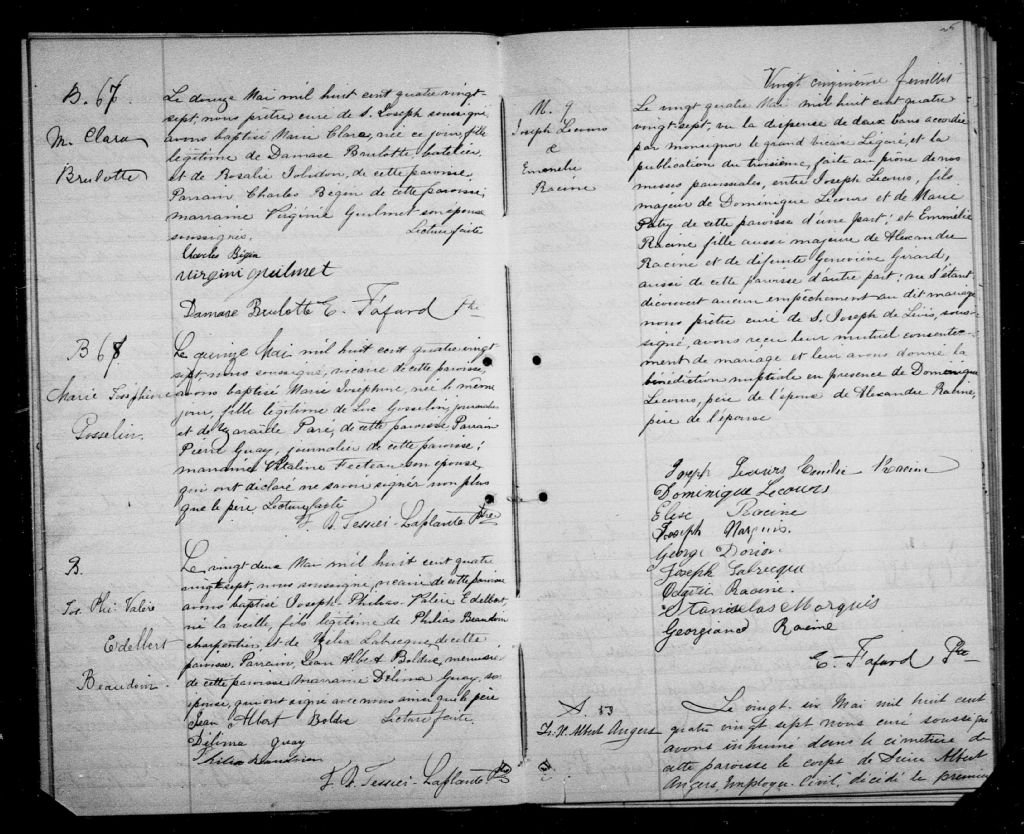 B. 67
M. Clara
Brulotte
Le douze Mai mil huit cent quatre vingt-
sept, nous prêtre curé de S. Joseph soussigné,
avons baptisé Marie Clara, née ce jour, fille
légitime de Damase Brulotte batelier
et de Rosalie Jolidon, de cette paroisse.
Parrain Charles Bégin de cette paroisse,
marraine Virginie Guilmet son épouse
soussignés. Lecture faite
Charles Bégin
Virgini guilmet
Damase Brulotte E. Fafard Ptre
B 68
Marie Joséphine
Gosselin.
Le quinze Mai mil huit cent quatre vingt
sept, nous soussigné, vicaire de cette paroisse,
avons baptisé Marie Joséphine, née le même
jour, fille légitime de Luc Gosselin, journalier
et de Zaraïde Paré, de cette paroisse Parrain
Pierre Guay, journalier de cette paroisse;
marraine Vitaline Fecteau son épouse,
qui ont déclaré ne savoir signer non plus
que le père. Lecture faite
F. A. Tessier-Laplante Ptre
B.
Jos. Phi. Valère
Edelbert
Beaudoin.
Le vingt deux Mai mil huit cent quatre
vingt sept, nous soussigné, vicaire de cette paroisse
avons baptisé Joseph-Philias-Valère Edelbert,
né la veille, fils légitime de Philias Beaudoin
charpentier, et de Labrecque, de cette
paroisse. Parrain, Jean Albert Bolduc, menuisier
de cette paroisse marraine Délima Guay, son
épouse, qui ont signé avec nous ainsi que le père
Jean Albert Bolduc Lecture faite.
Délima guay
Philias beaudoin
F. A. Tessier-Laplante Ptre
Vingt cinquième feuillet
M. 9
Joseph Lecours
&
Emmélie
Racine
Le vingt quatre Mai mil huit cent quatre
vingt-sept, vu la dispense de deux bans accordée
par monsignor le grand vicaire Légaré, et la
publication du troisième, faite au prône de nos
messes paroissiales, entre Joseph Lecours, fils
majeur de Dominique Lecours et de Marie
Patry de cette paroisse d'une part; et Emmélie
Racine fille aussi majeure de Alexandre
Racine et de défunte Geneviève Girard,
aussi de cette paroisse d'autre part; ne s'étant
découvert aucun empêchement au dit mariage
nous prêtre curé de S. Joseph de Lévis, sous-
signé, avons reçu leur mutuel consente-
ment de mariage et leur avons donné la
bénédiction nuptiale en présence de Dominique
Lecours, père de l'époux de Alexandre Racine,
père de l'épouse
Joseph Lecours Emilie Racine
Dominique Lecours
Elise Racine
Joseph Marquis.
George Dorion.
Joseph Labrecque
Odgétie Racine.
Stanislas Marquis
Georgiana Racine
E. Fafard Ptre
S. 53
Fr. X. Albert Angers
Le vingt six Mai mil huit cent
quatre vingt sept nous curé soussigné
avons inhumé dans le cimetière de
cette paroisse le corps de Albert
Angers, Employé Civil, décédé le premier